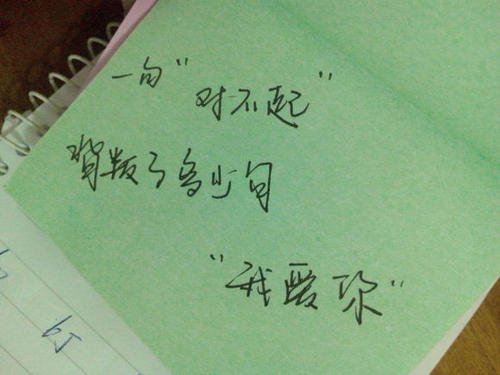 一句"对不起"
背叛了多少句
"我爱你"
的